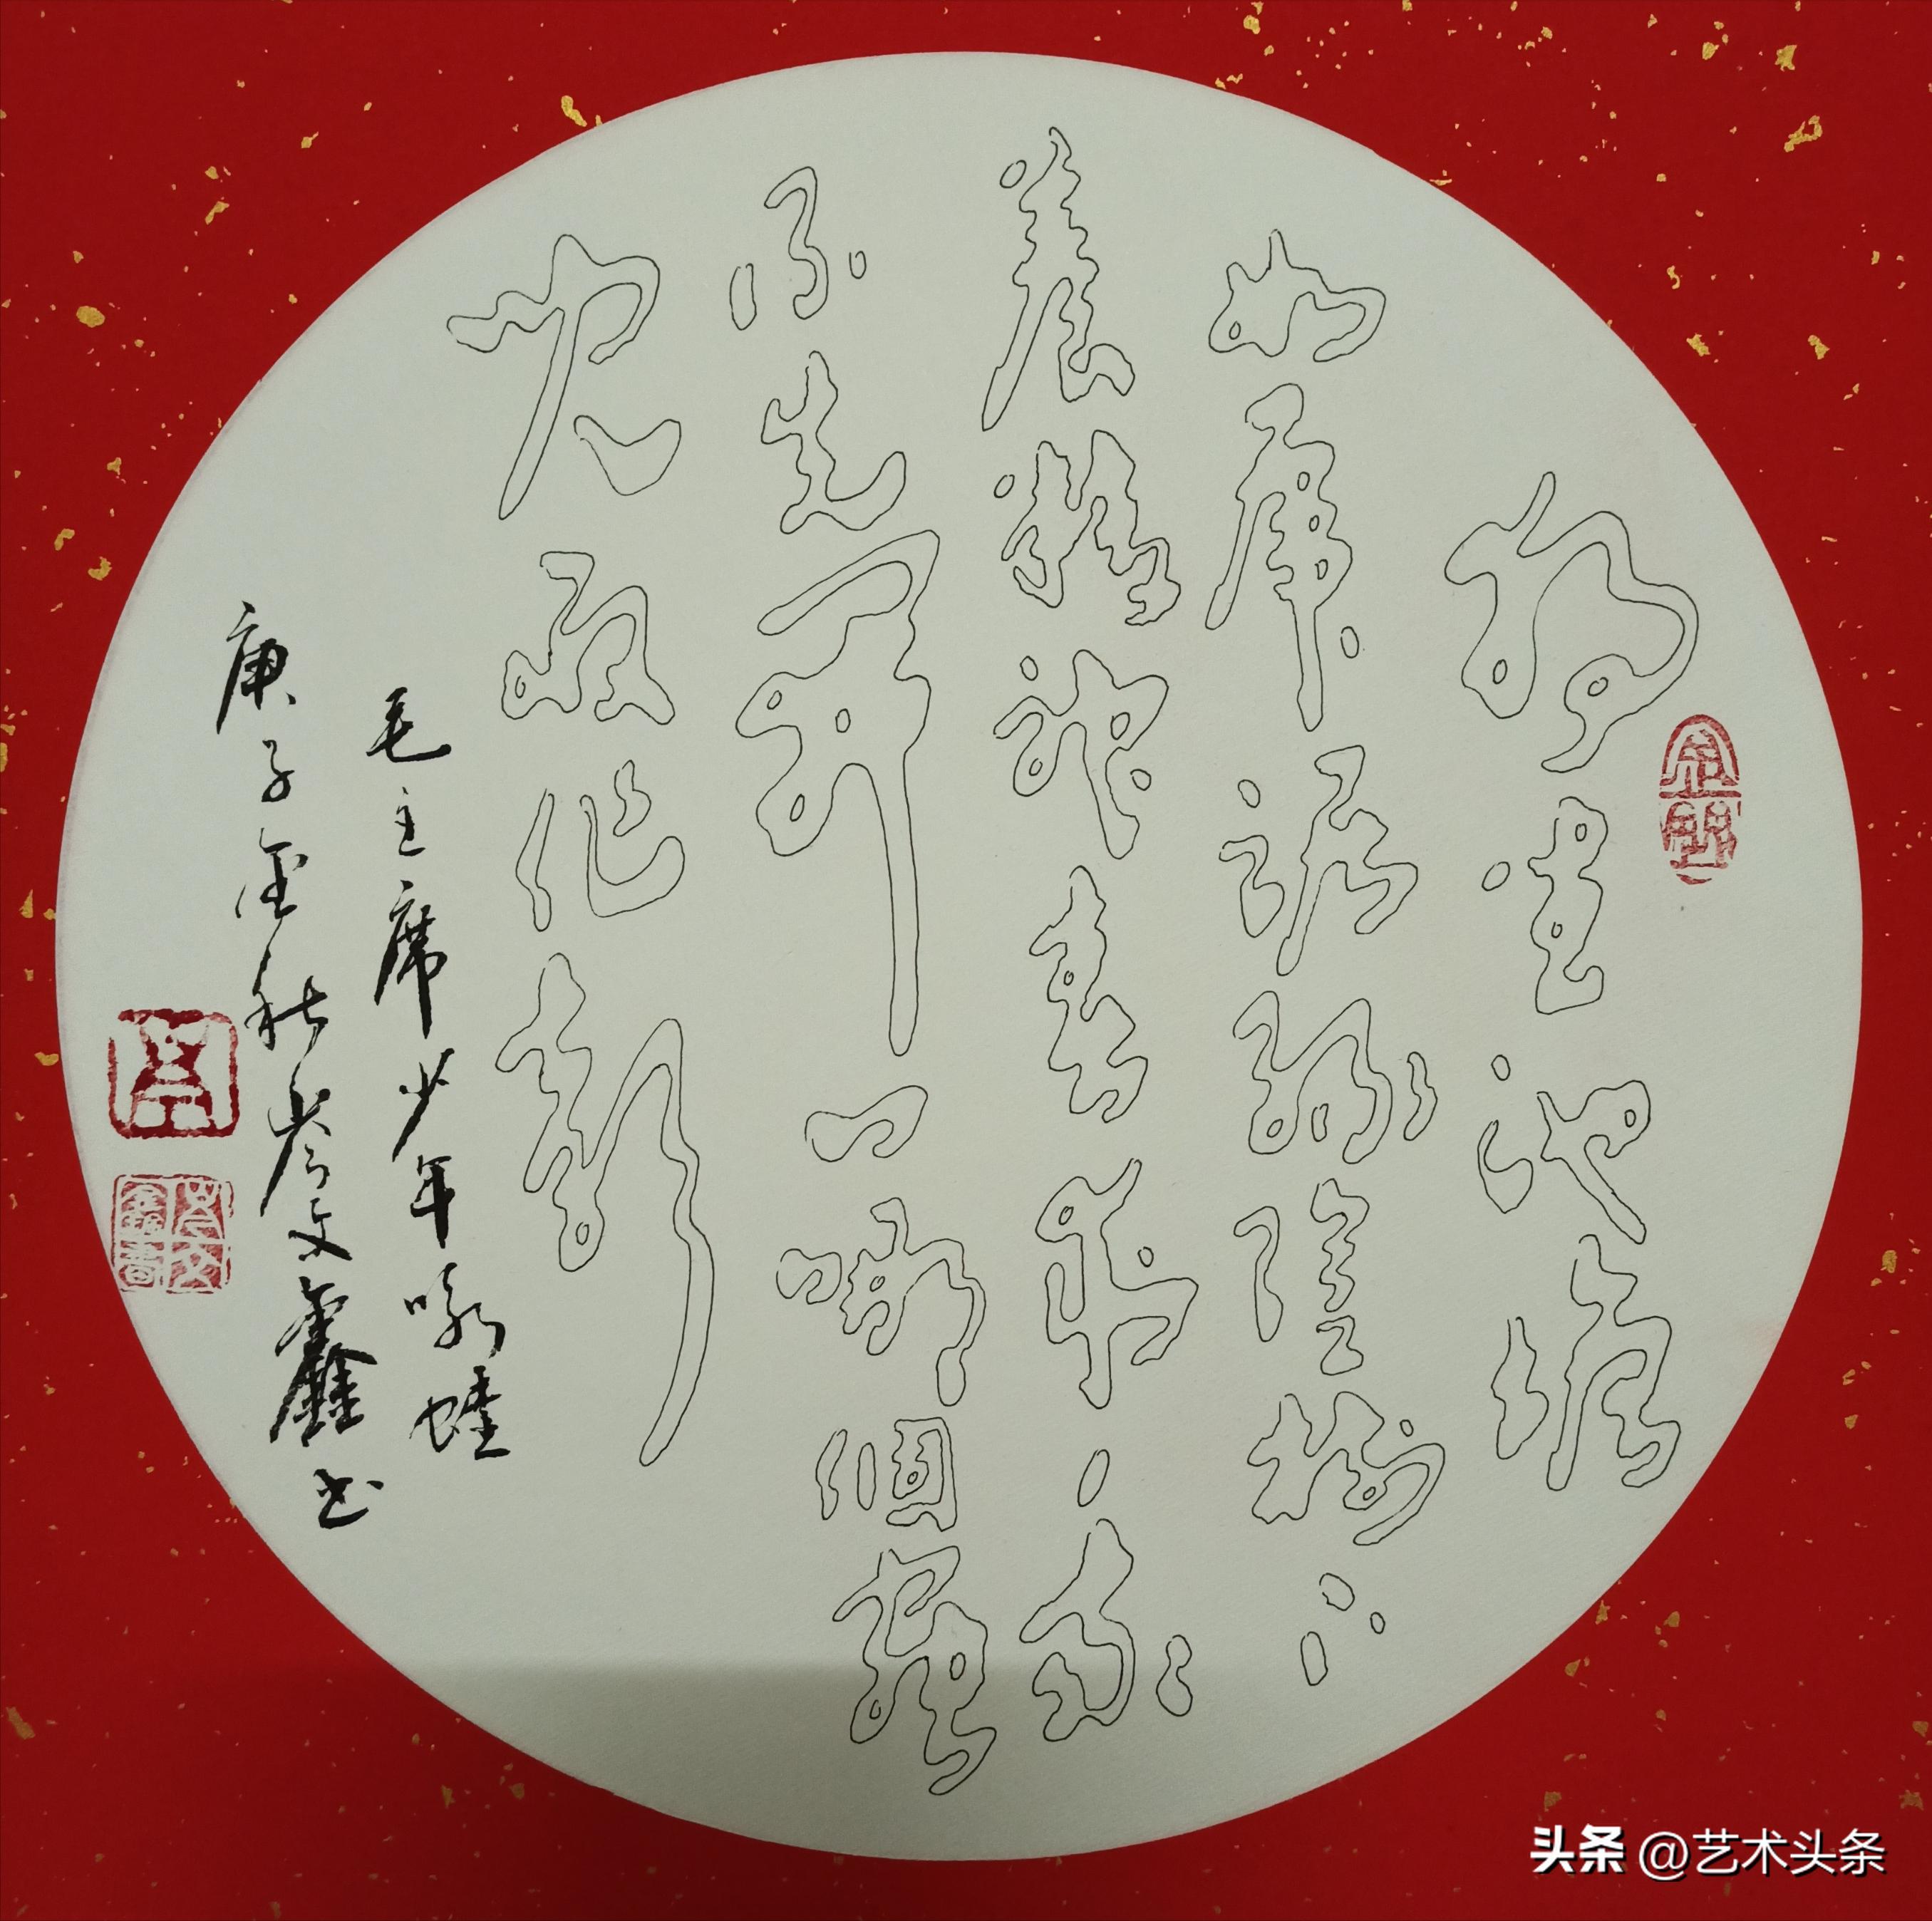 独坐池塘
如虎踞绿陰树下
養精神春来我
不先開口哪個虫
兒敢作聲
毛主席少年咏蛙
庚子金秋岑文鑫书
头条 @艺术头条